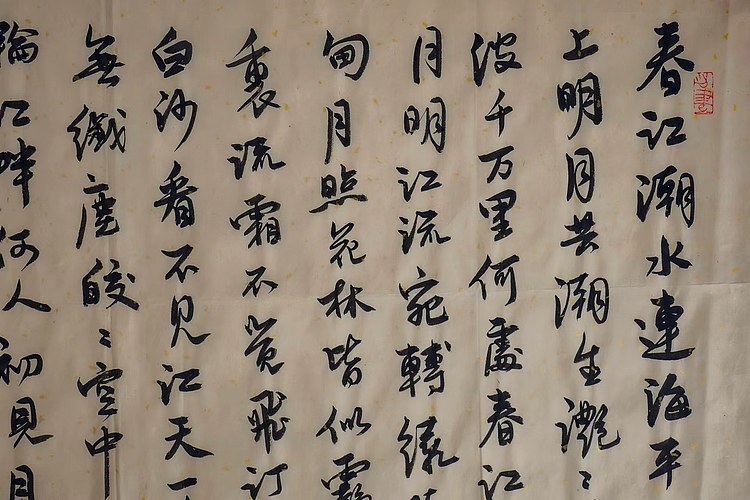 春江潮水連海平
上明月共潮生灩〻
波千万里何處春江
月明江流宛轉繞
甸月照花林皆似霰
裏流霜不覺飛汀
白沙看不見江天一
無纖塵皎〻空中
輪江畔何人初見月